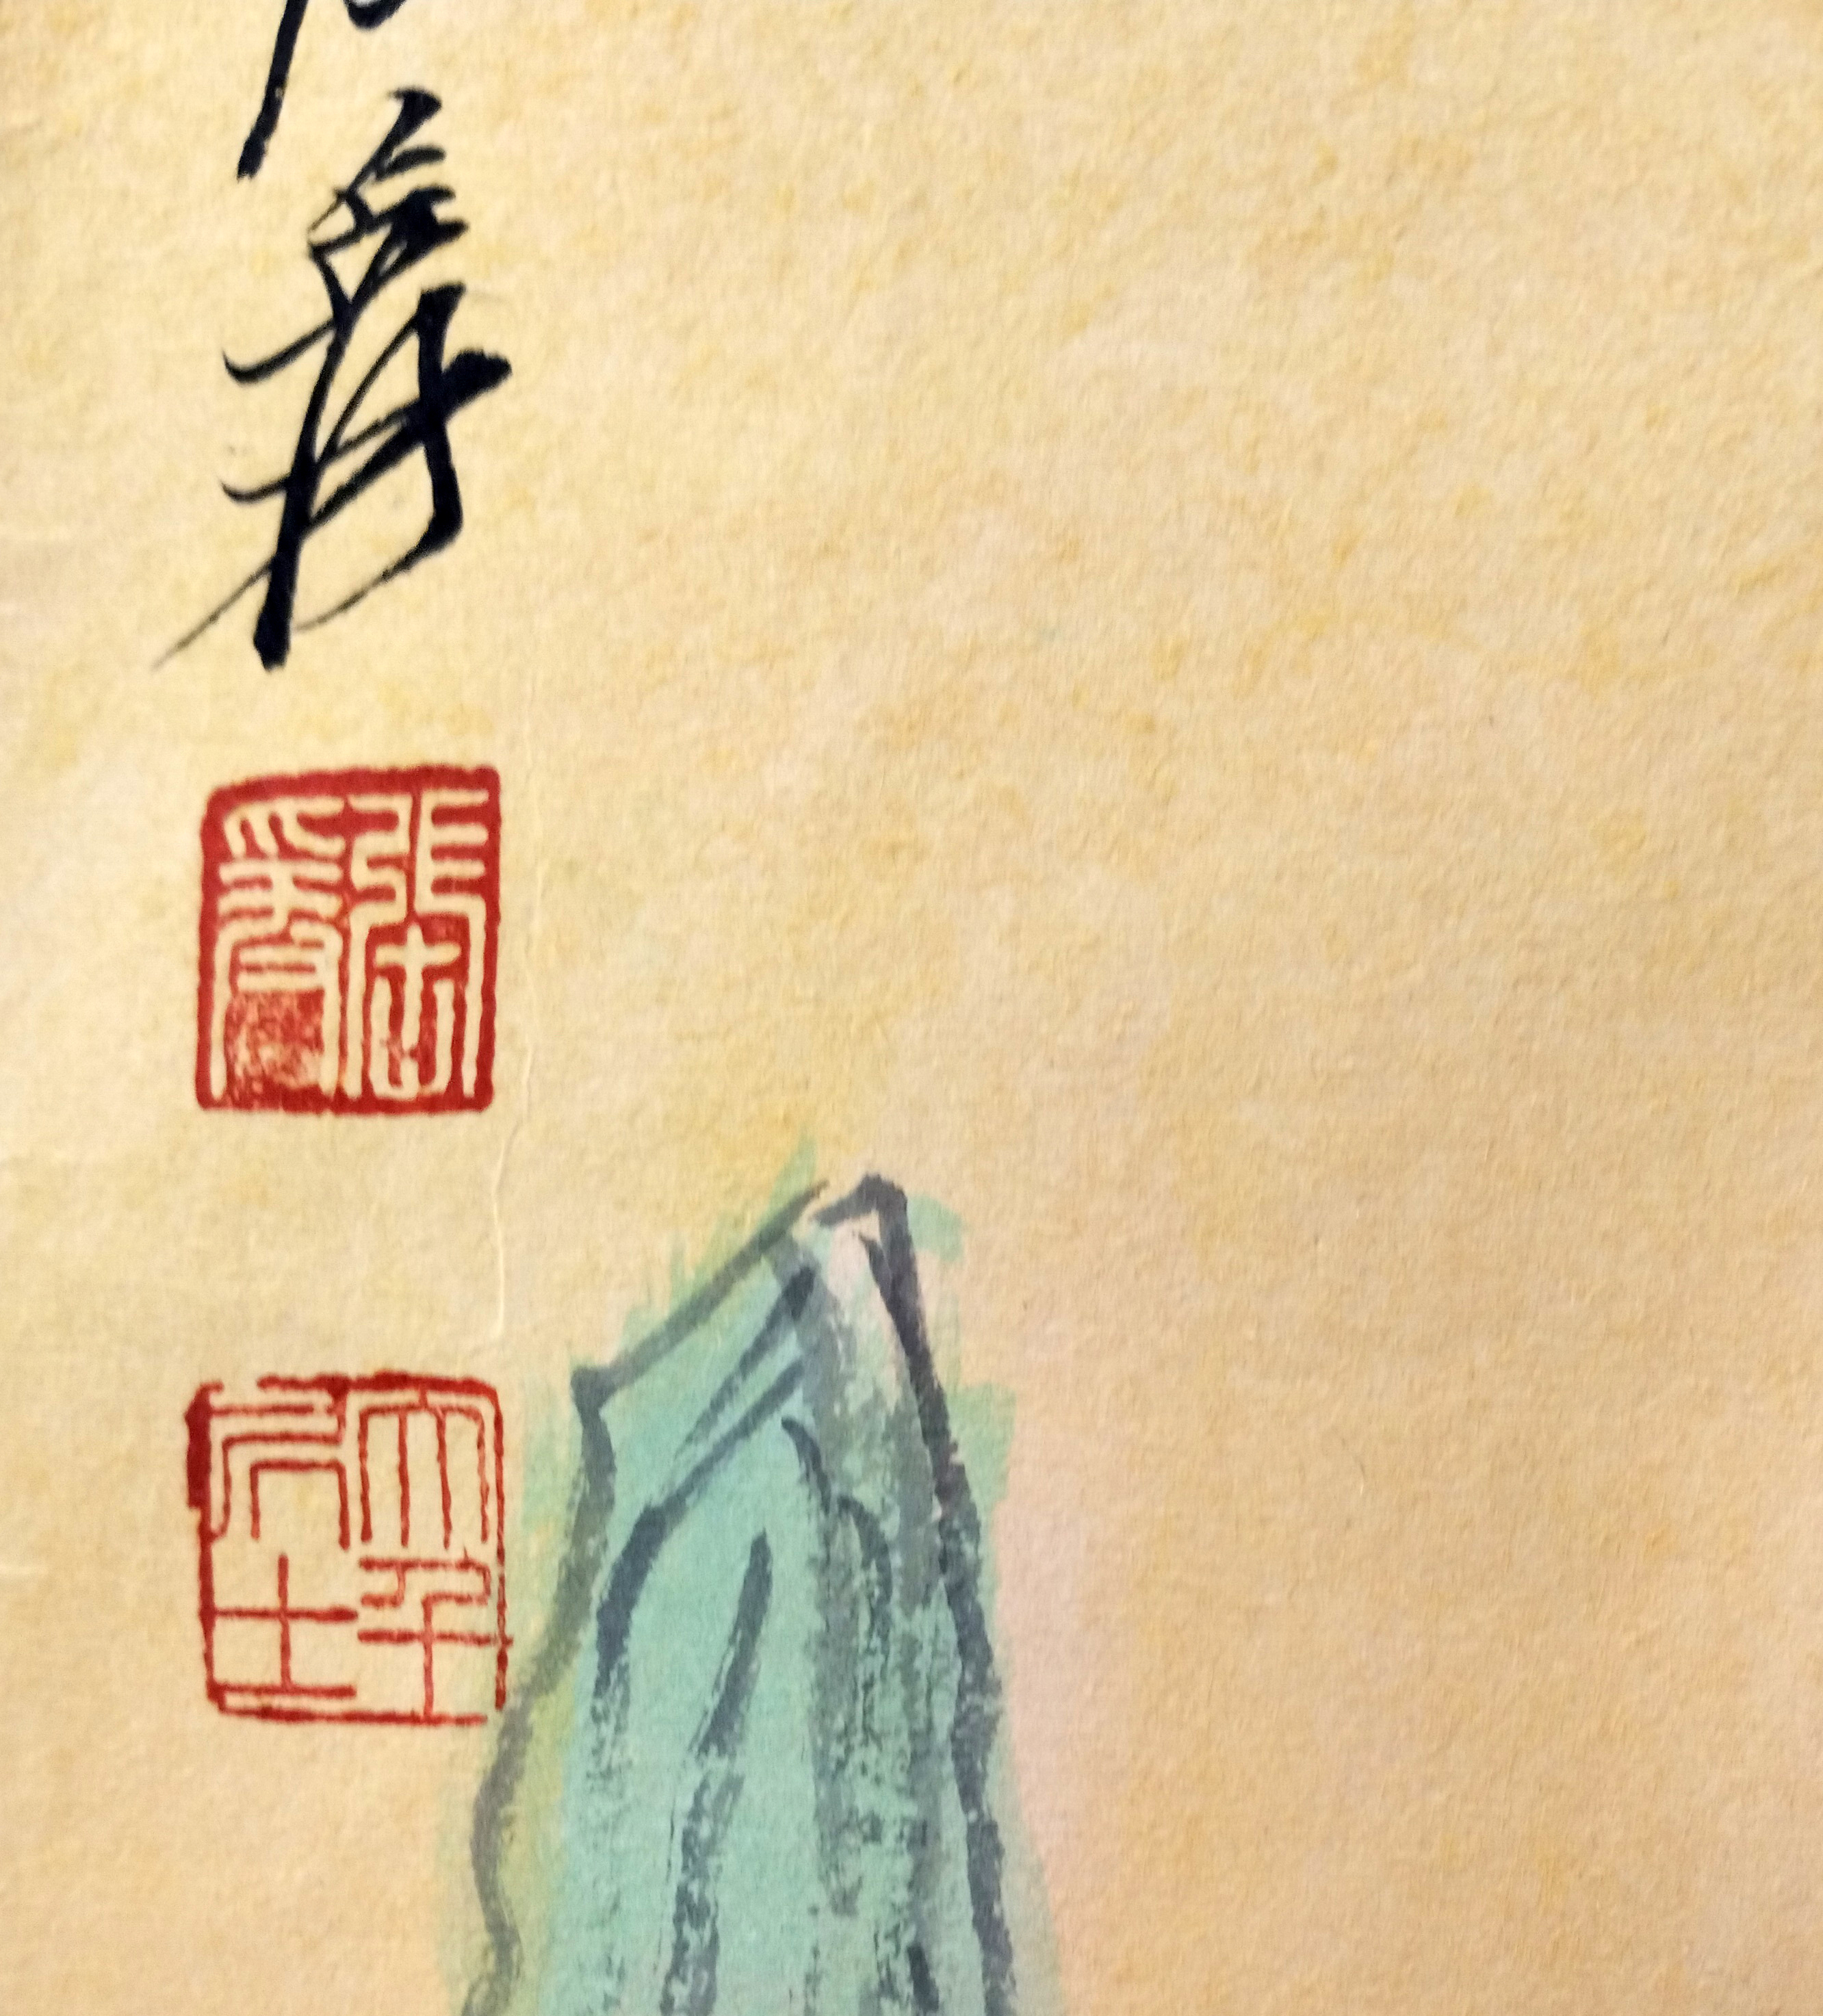 爰
張爰
大千居士